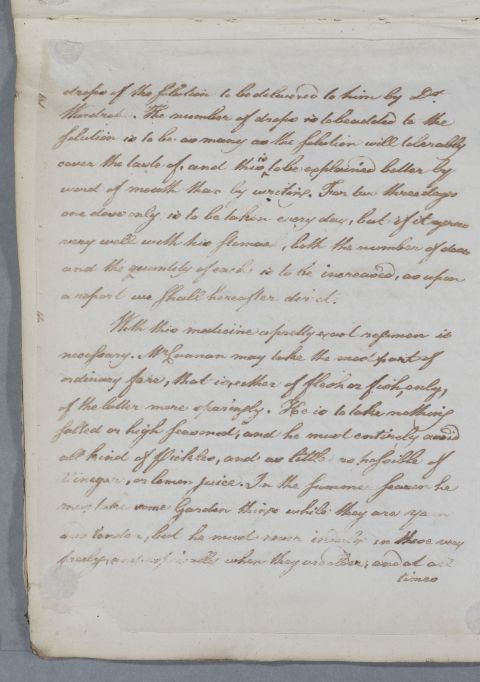 drops of the Solution to be delivered to him by Dr.
The number of drops is to be added to the
Solution is to be as many as the Solution will tolerably
cover the taste of, and this is to be explained better by
word of mouth than by writing. For two three days
one dose only is to be taken every day, but if it agrees
very well with his stomach, both the number of doses
and the quantity of each is to be increased, as upon
a report we shall hereafter direct.
With this medicine a pretty exact regimen is
necessary. Mr may take the most part of
ordinary fare, that is, either of flesh or fish, only,
of the latter more sparingly. He is to take nothing
salted or high seasoned, and he must entirely avoid
all kind of Pickles, and as little as possible of
Vinegar, or lemon juice. In the summer season he
may take some Garden things while they are young
and tender, but he must never indulge in these very
freely, and especially when they are older; and at all
times